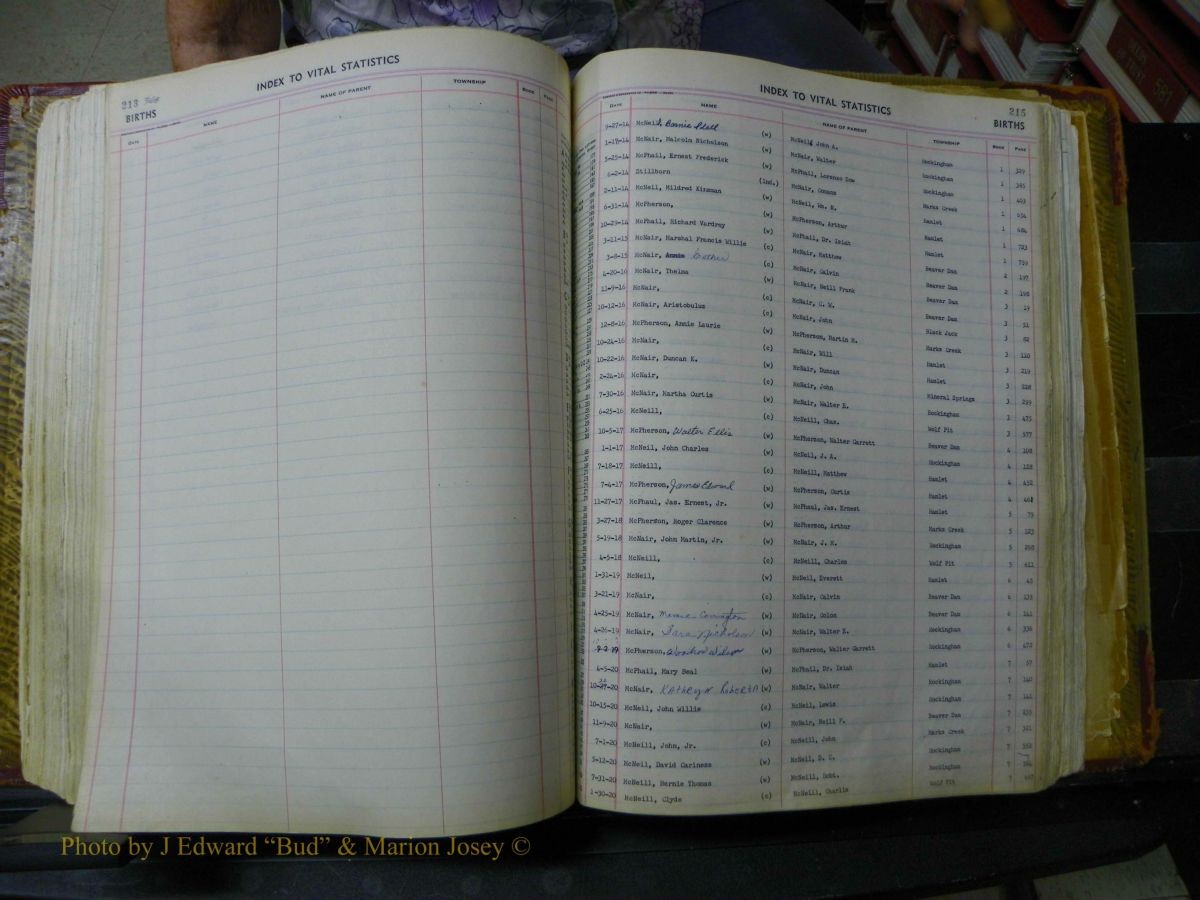 213
BIRTHS
INDEX TO VITAL STATISTICS
DATE NAME NAME OF PARENT TOWNSHIP BOOK PAGE
INDEX TO VITAL STATISTICS
215
BIRTHS
DATE NAME NAME OF PARENT TOWNSHIP BOOK PAGE
9-27-14 McNeil, Bonnie Idell (w) McNeill John A. Rockingham 1 329
1-17-14 McNair, Malcolm Nicholson (w) McNair, Walter Rockingham 1 385
5-25-14 McPhail, Ernest Frederick (w) McPhail, Lorenzo Dow Rockingham 1 403
6-2-14 Stillborn (Ind.) McNair, Marks Creek 1 434
2-11-14 McNeil, Mildred Kinsman (w) McNeil, Wm. H. Hamlet 1 484
6-31-14 McPherson, (w) McPherson, Arthur Hamlet 1 723
10-29-14 McPhail, Richard Vardrey (w) McPhail, Dr. Isiah Hamlet 1 759
3-11-15 McNair, Marshal Francis Willie (c) McNair, Matthew Beaver Dam 2 197
3-8-15 McNair, Annie Esther (c) McNair, Calvin Beaver Dam 2 198
4-20-16 McNair, Thelma (w) McNair, Neill Frank Beaver Dam 3 19
11-9-16 McNair, (c) McNair, C. W. Beaver Dam 3 51
10-12-16 McNair, Aristobulus (c) McNair, John Black Jack 3 82
12-8-16 McPherson, Annie Laurie (w) McPherson, Martin H. Marks Creek 3 110
10-24-16 McNair, (c) McNair, Will Hamlet 3 219
10-22-16 McNair, Duncan K. (w) McNair, Duncan Hamlet 3 228
2-24-16 McNair, (c) McNair, John Mineral Springs 3 299
7-30-16 McNair, Martha Curtis (w) McNair, Walter E. Rockingham 3 475
6-25-16 McNeill, (c) McNeill, Chas. Wolf Pit 3 577
10-5-17 McPherson, Walter Ellis (w) McPherson, Walter Garrett Beaver Dam 4 108
1-1-17 McNeil, John Charles (w) McNeil, J. A. Rockingham 4 128
7-18-17 McNeill, (c) McNeill, Matthew Hamlet 4 432
7-4-17 McPherson, James Edward (w) McPherson, Curtis Hamlet 4
11-27-17 McPhaul, Jas. Ernest, Jr. (w) McPhaul, Jas. Ernest Hamlet 5 79
3-27-18 McPherson, Roger Clarence (w) McPherson, Arthur Marks Creek 5 123
5-19-18 McNair, John Martin, Jr. (w) McNair, J. M. Rockingham 5 258
4-5-18 McNeill, (c) McNeill, Charles Wolf Pit 5 411
1-31-19 McNeil, (w) McNeil, Everett Hamlet 6 45
3-21-19 McNair, (c) McNair, Calvin Beaver Dam 6 133
4-25-19 McNair, Covington (w) McNair, Colon Beaver Dam 6 141
4-26-19 McNair, Sara Nicholson (w) McNair, Walter E. Rockingham 6 336
9-2-19 McPherson, Woodrow Wilson (w) McPherson, Walter Garrett Rockingham 6 472
4-5-20 McPhail, Mary Seal (w) McPhail, Dr. Isiah Hamlet 7 67
10-27-20 McNair, Kathryn Roberta (w) McNair, Walter Rockingham 7 140
10-15-20 McNeil, John Willis (c) McNeil, Lewis Rockingham 7 144
11-9-20 McNair, (w) McNair, Neill F. Beaver Dam 7 233
7-1-20 McNeill, John, Jr. (c) McNeill, John Marks Creek 7 321
5-12-20 McNeil, David Gariness (w) McNeil, D. C. Rockingham 7 352
7-31-20 McNeill, Bernie Thomas (w) McNeill, Robt. Rockingham 7
1-30-20 McNeill, Clyde (c) McNeill, Charlie Wolf Pit 7
581
Photo by J Edward “Bud” & Marion Josey ©